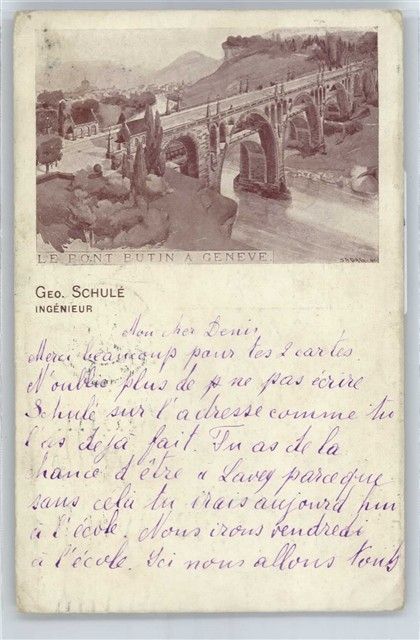 LE PONT BUTIN A GENEVE
GEO. SCHULÉ
INGÉNIEUR
Mon cher Denis
Merci beaucoup pour tes 2 cartes.
N'oublie plus de ne pas écrire
Schulé sur l'adresse comme tu
l'as dejà fait. Tu as de la
chance d'être a Lavey parceque
sans cela tu irais aujourd'hui
à l'école. Nous irons vendredi
à l'école. Ici nous allons tous